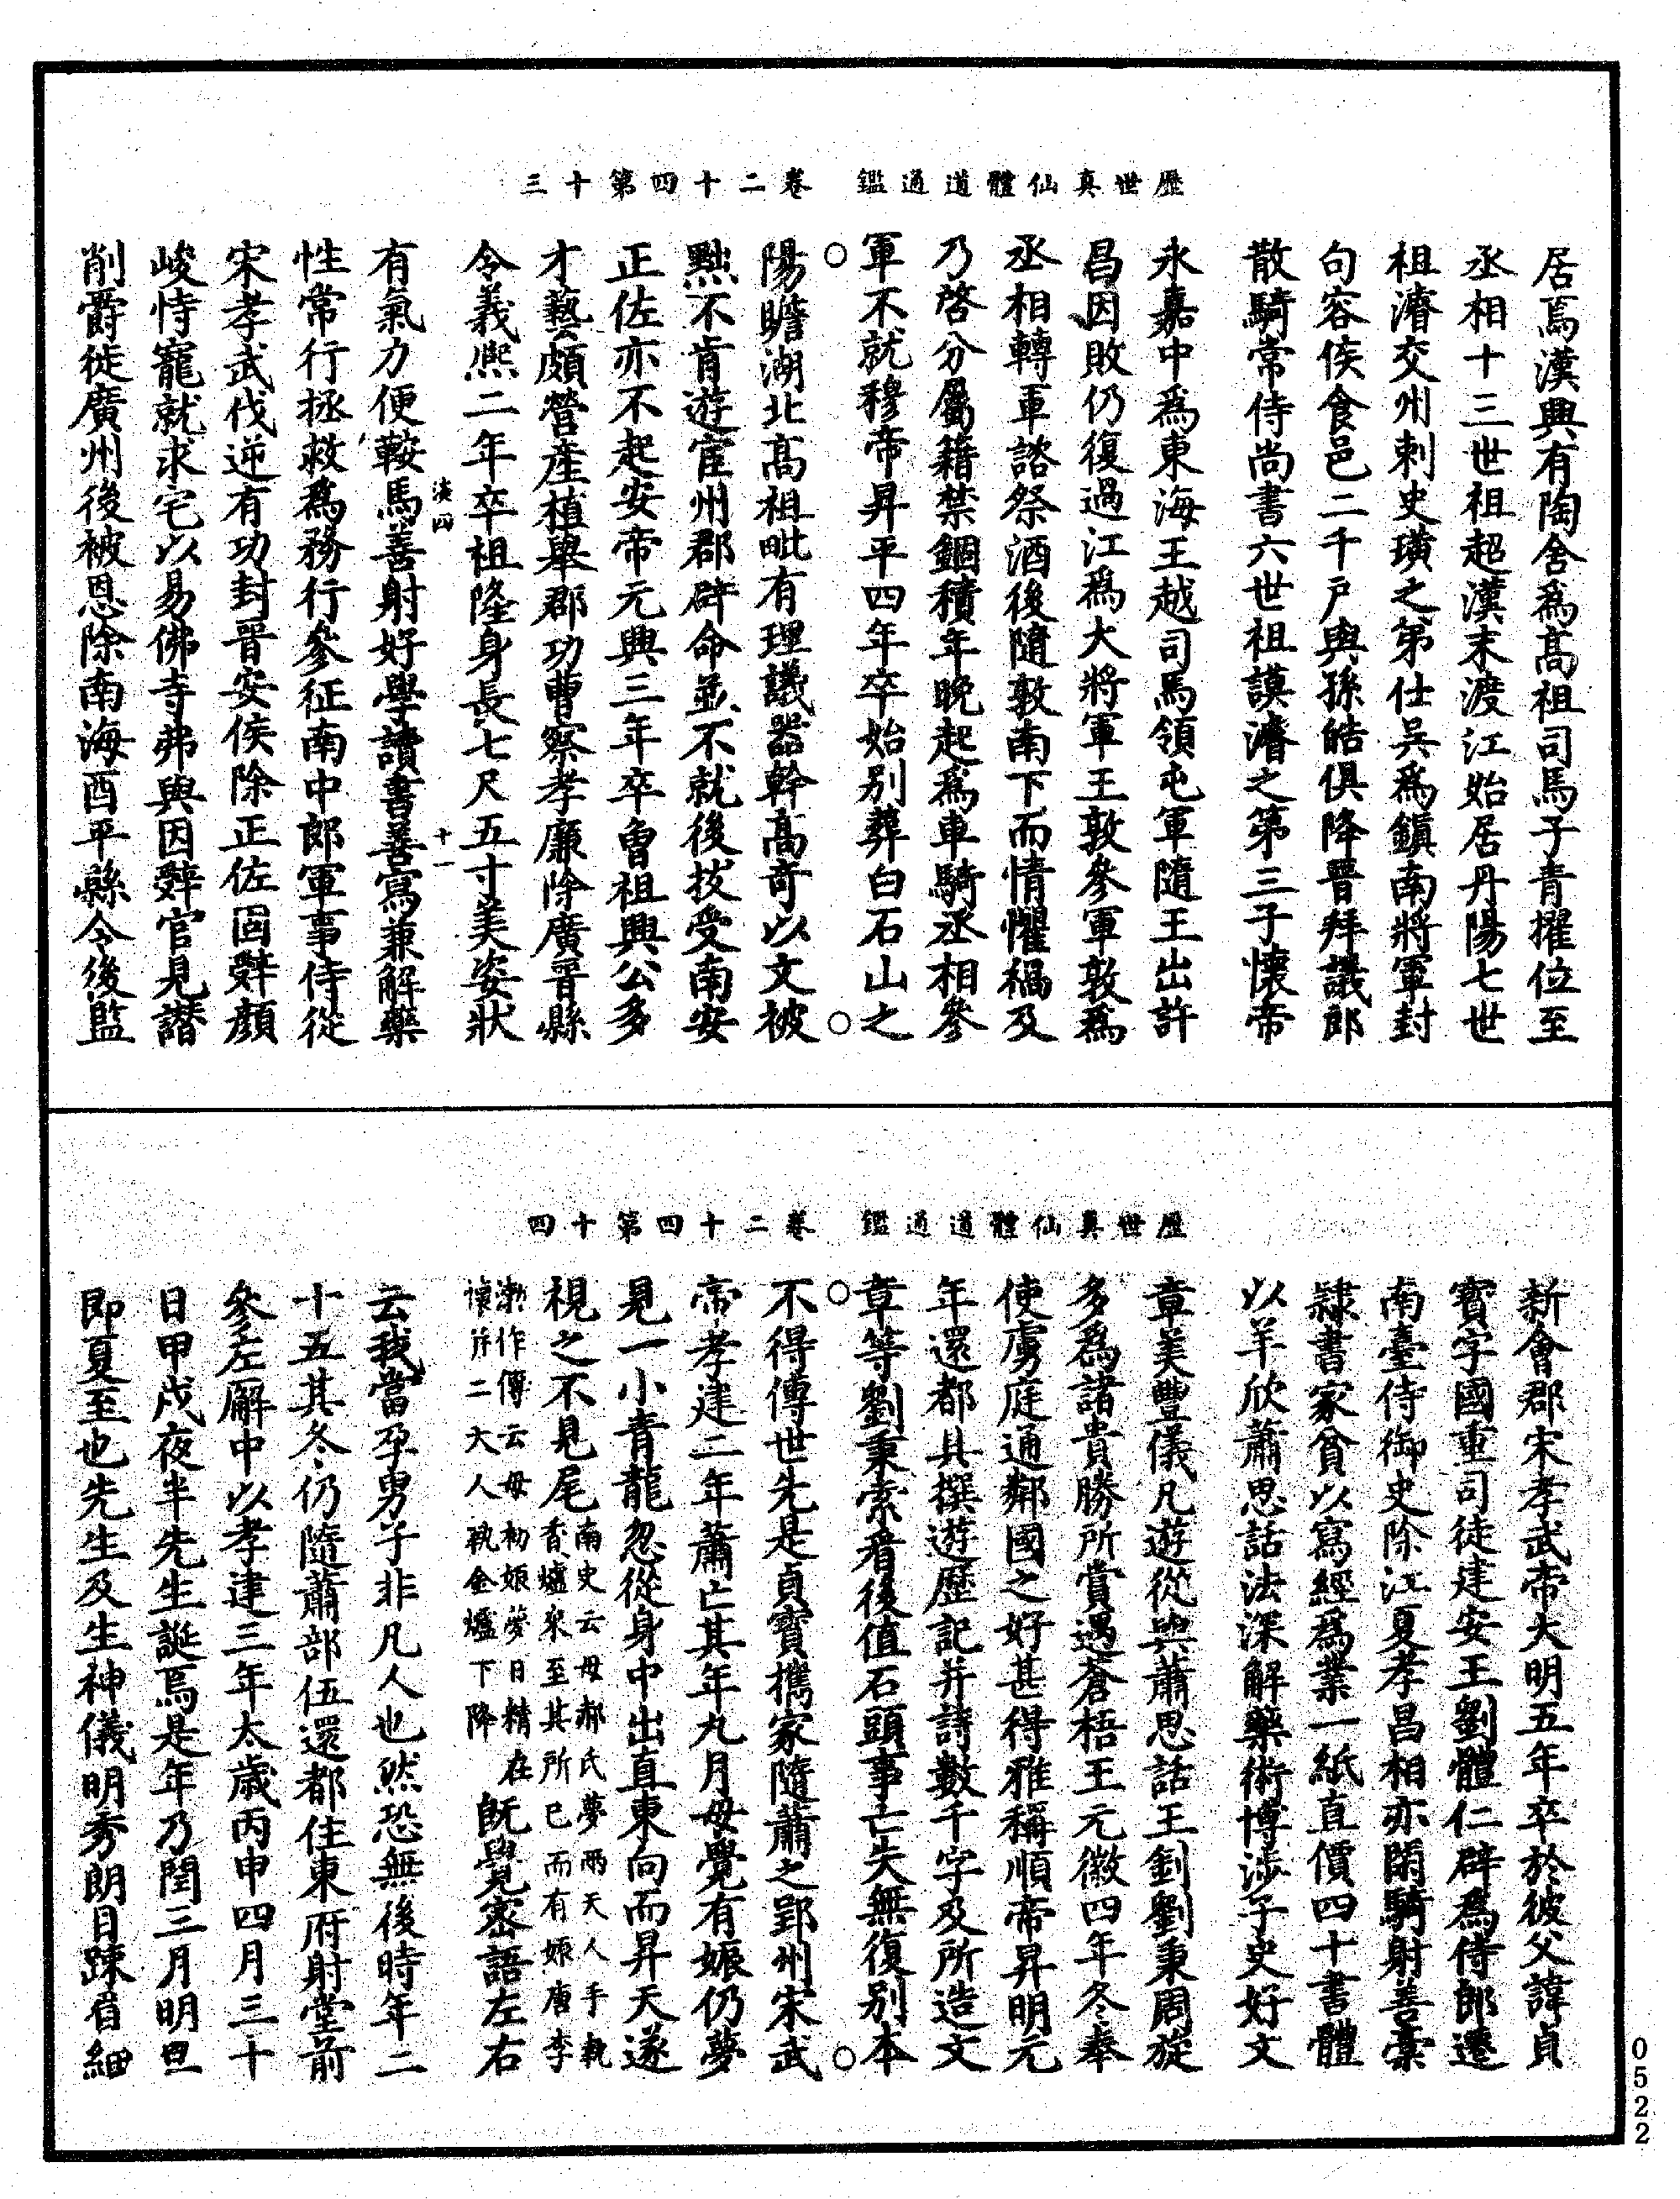 歷世真仙體道通鑑　卷二十四第十三
居焉漢興有陶舍爲髙祖司馬子青擢位至
丞相十三世祖超漢末渡江始居丹陽七世
祖濬交州刺史璜之弟仕吳爲鎮南將軍封
句容侯食邑二千戶與孫皓俱降晉拜議郎
散騎常侍尚書六世祖謨濬之第三子懷帝
永嘉中爲東海王越司馬領屯軍隨王出許
昌因敗仍復過江爲大將軍王敦參軍敦爲
丞相轉軍諮祭酒後隨敦南下而情懼禍及
乃啓分屬籍禁錮積年晚起爲車騎丞相參
軍不就穆帝昇平四年卒始别葬白石山之
陽瞻湖北髙祖毗有理識器幹髙奇以文被
黜不肯遊宦州郡辟命並不就後拔受南安
正佐亦不起安帝元興三年卒曾祖興公多
才藝頗營產植舉郡功曹察孝廉除廣晉縣
令義熙二年卒祖隆身長七尺五寸美姿狀
淡四　十一
有氣力便鞍馬善射好學讀書善寫兼解藥
性常行拯救爲務行參征南中郎軍事侍從
宋孝武伐逆有功封晉安侯除正佐固辭顔
峻恃寵就求宅以易佛寺弗與因辭官見譖
削爵徙廣州後被恩除南海酉平縣令後監
歷世真仙體道通鑑　卷二十四第十四
新會郡宋孝武帝大明五年卒於彼父諱貞
寶字國重司徒建安王劉體仁辟爲侍郎遷
南臺侍御史除江夏孝昌相亦閑騎射善藁
隸書家貧以寫經爲業一紙直價四十書體
以羊欣蕭思話法深解藥術博涉子史好文
章美豐儀凡遊從與蕭思話王釗劉秉周旋
多爲諸貴勝所賞遇蒼梧王元徽四年冬奉
使虜庭通鄰國之好甚得雅稱順帝昇明元
年還都具撰遊歷記并詩數千字及所造文
章等劉秉索看後值石頭事亡失無復别本
不得傳世先是貞寶攜家隨蕭之郢州宋武
帝孝建二年蕭亡其年九月母覺有娠仍夢
見一小青龍忽從身中出直東向而昇天遂
視之不見尾南史云母郝氏夢兩天人手執香爐來至其所已而有娠唐李
渤作傳云母初娠夢日精在懷并二大人執金爐下降既覺密語左右
云我當孕男子非凡人也然恐無後時年二
十五其冬仍隨蕭部伍還都住東府射堂前
參左廨中以孝建三年太歲丙申四月三十
日甲戌夜半先生誕焉是年乃閏三月明旦
即夏至也先生及生神儀明秀朗目疎眉細
0522